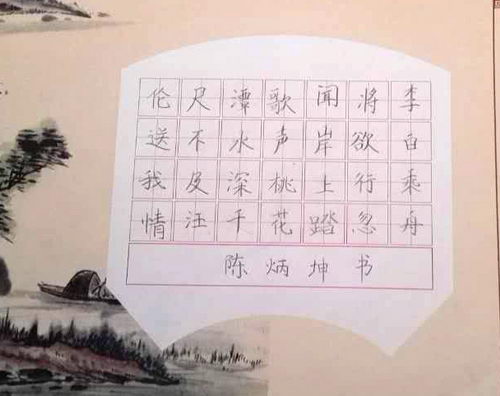 李白乘舟
将欲行忽
闻岸上踏
歌声桃花
潭水深千
尺不及汪
伦送我情
陈炳坤书